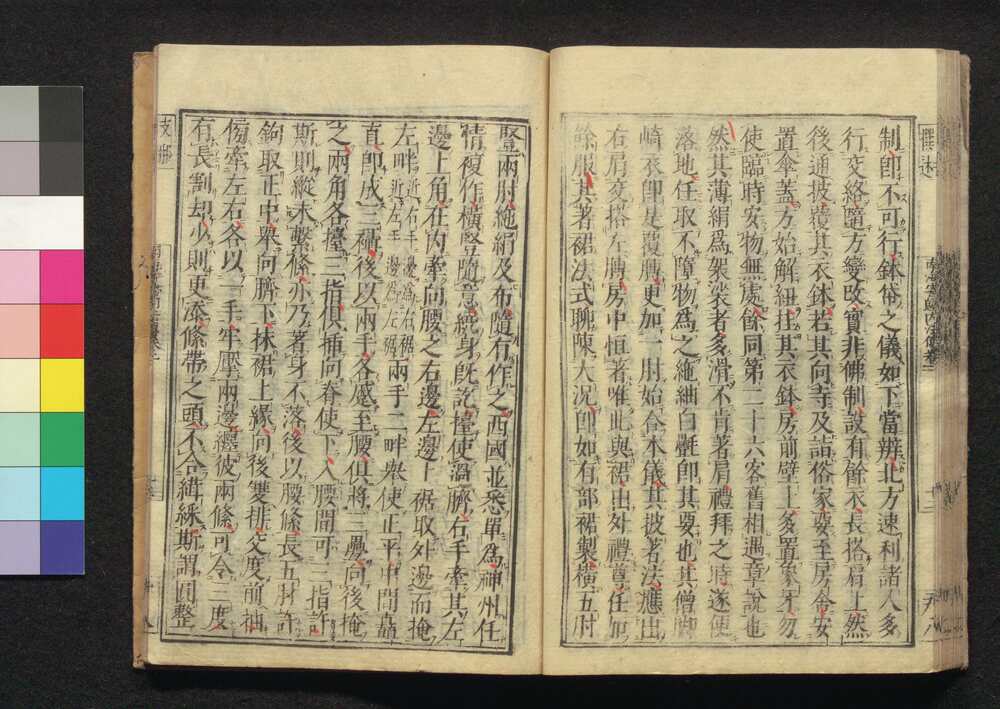 制即不可行鉢帒之儀如下當辨北方速利諸人多
行交絡隨方變改實非佛制設有餘衣長搭肩上然
後通披覆其衣鉢若其向寺及詣俗家要至房舍安
置傘蓋方始解紐挂其衣鉢房前壁上多置象牙勿
使臨時安物無處餘同第二十六客舊相遇章說也
然其薄絹爲袈裟者多滑不肯著肩禮拜之時遂便
落地任取不墮物爲之絁紬白㲲即其要也其僧脚
崎衣即是覆膊更加一肘始合本儀其披著法應出
右肩交搭左膊房中恒著唯此與裙出外禮尊任加
餘服其著裙法式聊陳大況即如有部裙製橫五肘
豎兩肘絁絹及布隨有作之西國並悉單爲神州任
情複作橫豎隨意繞身既訖擡使過臍右手牽其左
邊上角在內牽向腰之右邊左邊上裙取外邊而掩
左畔近右手邊爲右裙近左手邊爲左裙兩手二畔舉使正平中間矗
直即成三襵後以兩手各蹙至腰俱將三疊向後掩
之兩角各擡三指俱插向脊使下入腰間可三指許
斯則縱未繫絛亦乃著身不落後以腰絛長五肘許
鉤取正中舉向臍下抹裙上緣向後雙排交度前抽
傍牽左右各以一手牢壓兩邊纏彼兩絛可令三度
有長割却少則更添絛帶之頭不合緝綵斯謂圓整